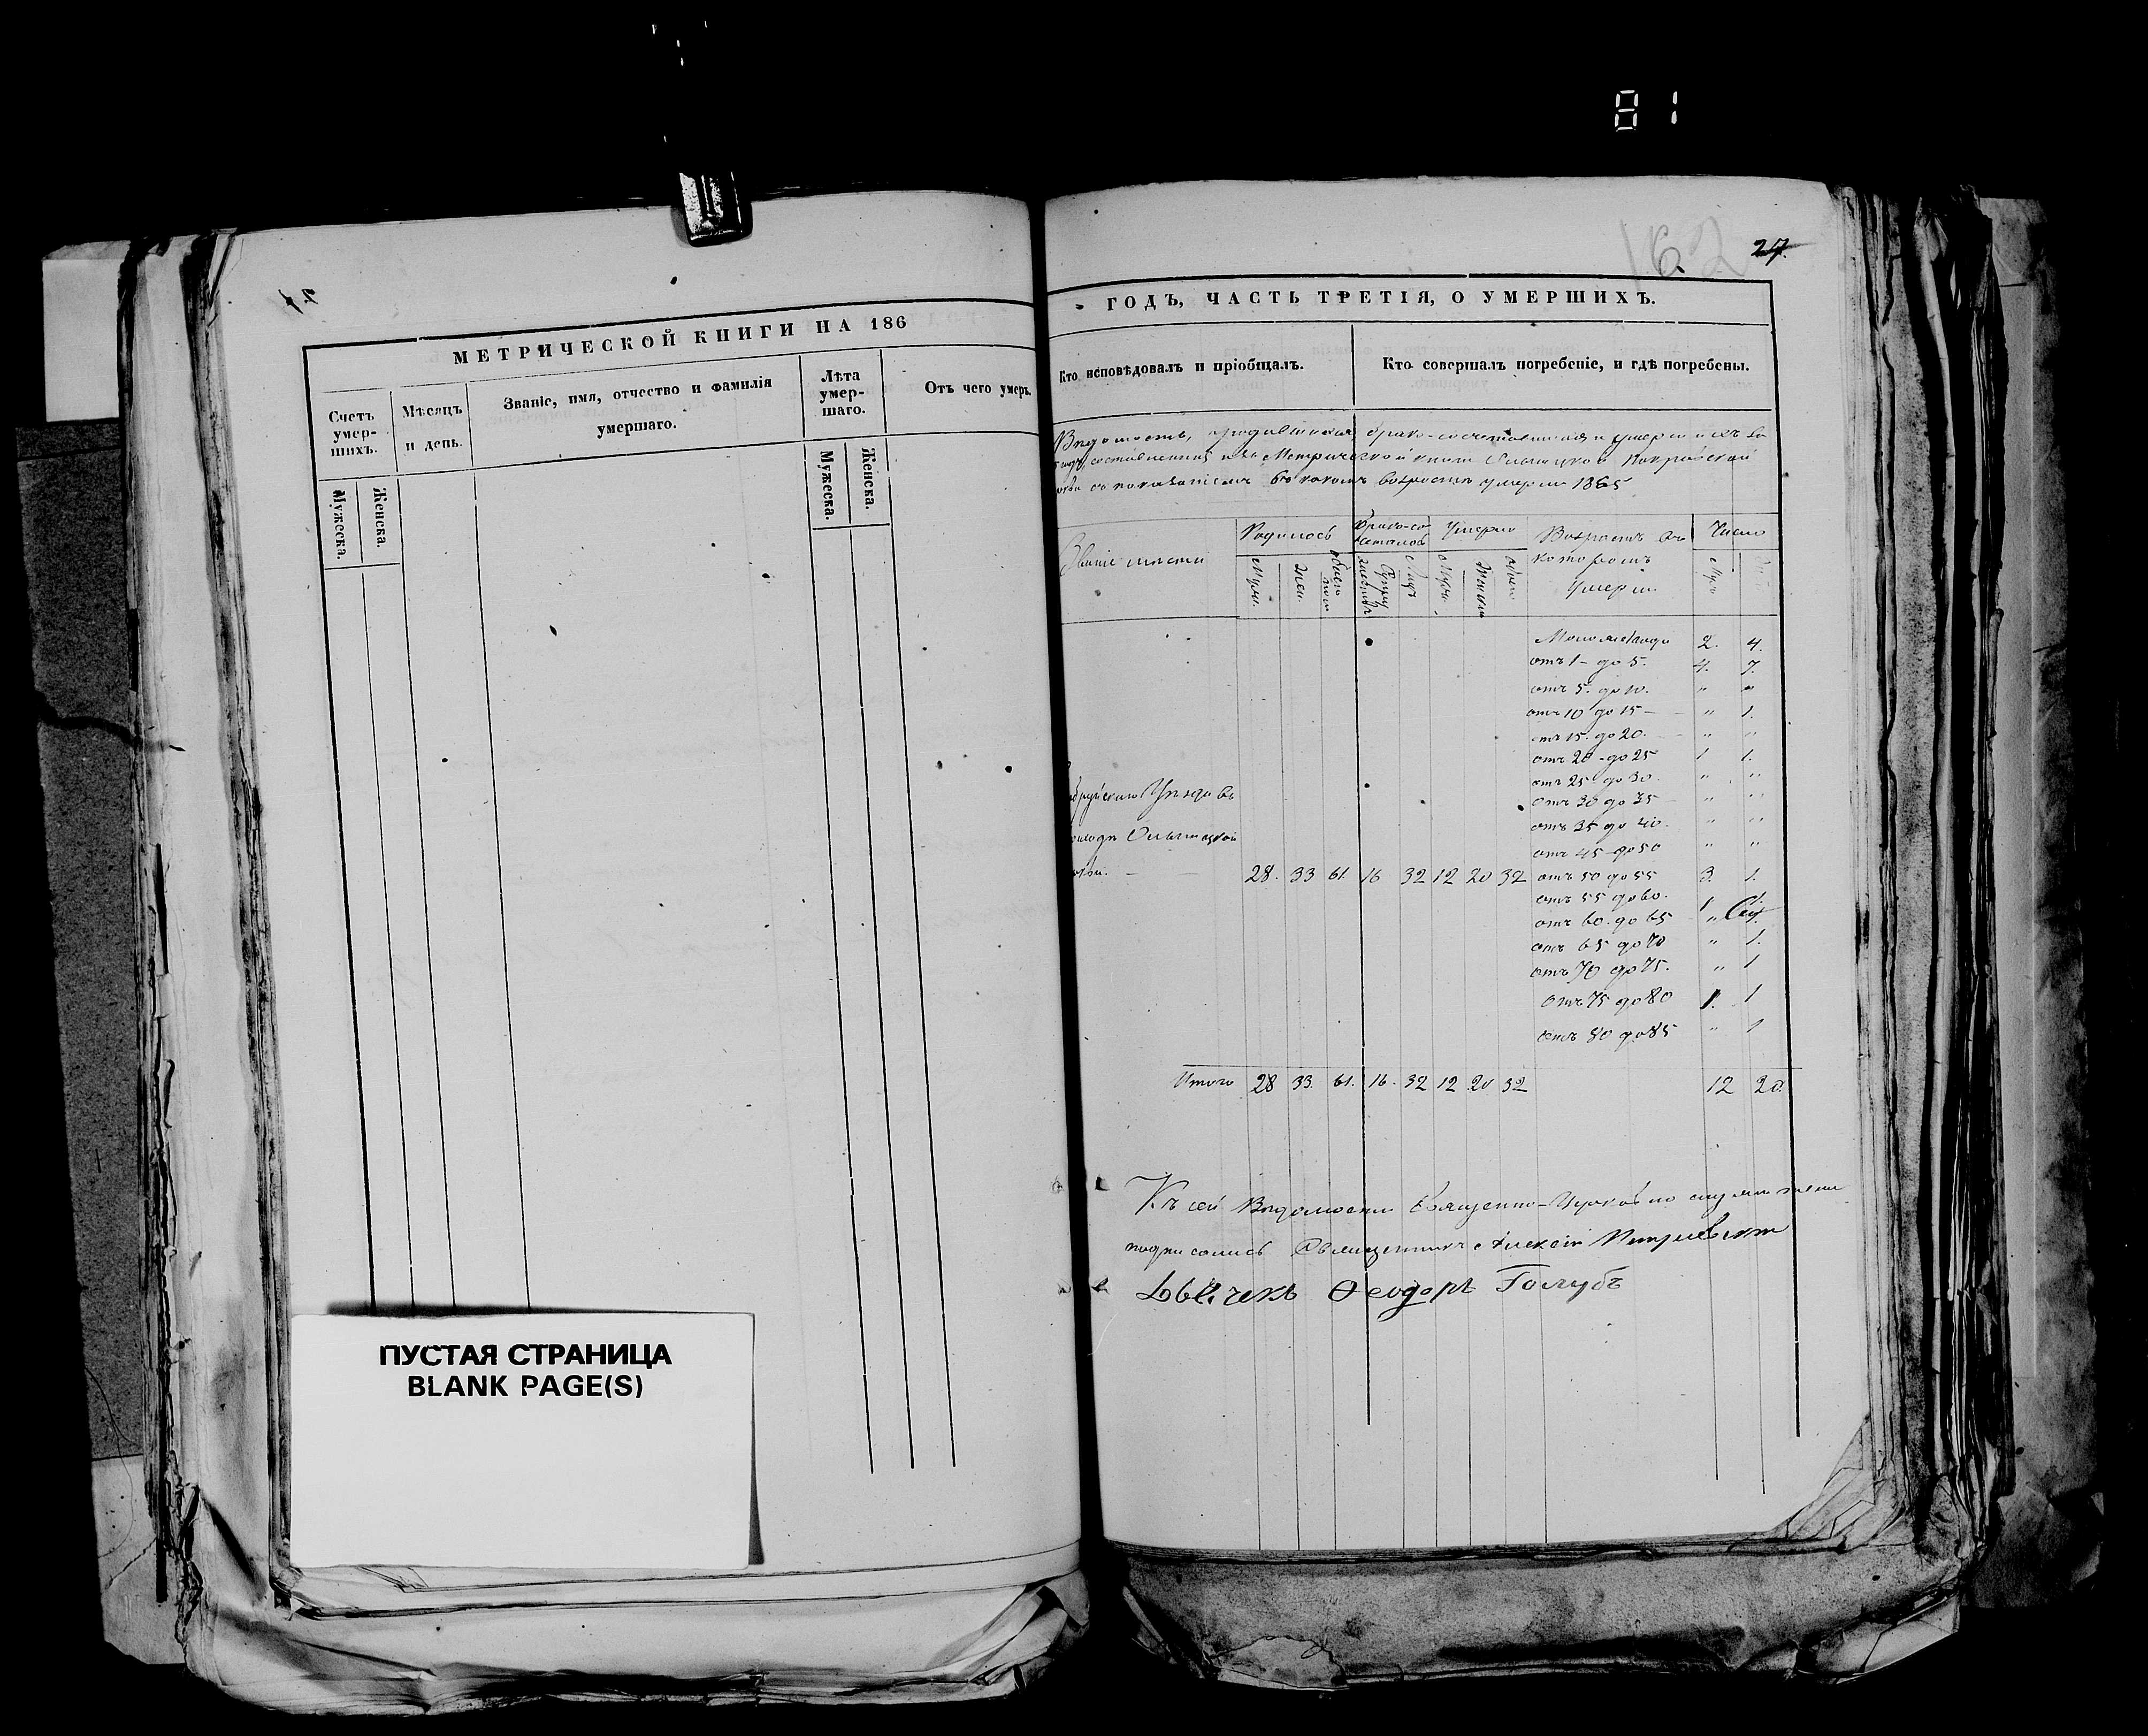 81
162
27.
МЕТРИЧЕСКОЙ КНИГИ НА 186
Счетъ умер-шихъ.
Мужеска.
Женска.
Мѣсяцъ и день.
Званіе, имя, отчество и фамилія умершаго.
Лѣта умер-шаго.
Мужеска.
Женска.
Отъ чего умеръ.
ПУСТАЯ СТРАНИЦА
BLANK PAGE(S)
ГОДЪ, ЧАСТЬ ТРЕТІЯ, О УМЕРШИХЪ.
Кто исповѣдовалъ и пріобщалъ.
Кто совершалъ погребеніе, и гдѣ погребены.
Вѣдомость, родившихся брако-сочетавшихся и умершихъ за
составленная изъ Метрической книги Покровской
съ показаніемъ въ какомъ возрастѣ умерли 1865
Званіе мѣста
Родилось
Умерло
Возрастъ въ которомъ умерли
Число
2. 4.
отъ 1 - до 5. 4. 7.
отъ 5. до 10. " "
отъ 10 до 15 - " 1.
отъ 15. до 20. " "
отъ 20 - до 25 1 1.
отъ 25 до 30. " "
отъ 30 до 35 " "
отъ 35 до 40. " "
отъ 45 - до 50 " "
Уѣзда въ
28. 33 61. 16 32 12 20 32 отъ 50 до 55 3. 1.
отъ 55 до 60. 1.
отъ 60. до 65 "
отъ 65 до 70 " 1.
отъ 70 до 75. " 1
отъ 75 до 80 1. 1
отъ 80 до 85 " 1
Итого 28 33. 61. 16. 32 12 20 32 12 20.
Къ сей Вѣдомости Священно-Церковно служители
подписались Священникъ Алексій
Дьячекъ Ѳеодоръ Голубъ